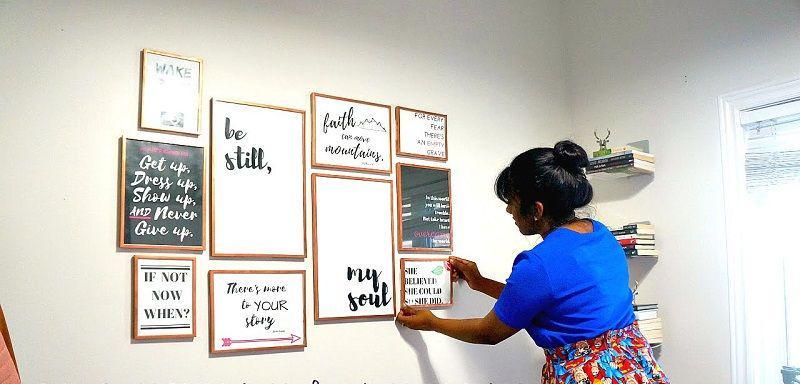 WAKE
Get up,
Dress up,
Show up,
AND Never
Give up.
IF NOT
NOW
WHEN?
be
still,
There's more
to YOUR
story
faith
can move
mountains.
my
soul
FOR EVERY
FEAR
THERE'S
AN EMPTY
GRAVE
In this world
you will have
trouble.
But take heart
I have
overcome
the world.
SHE
BELIEVED
SHE COULD
SO SHE DID.